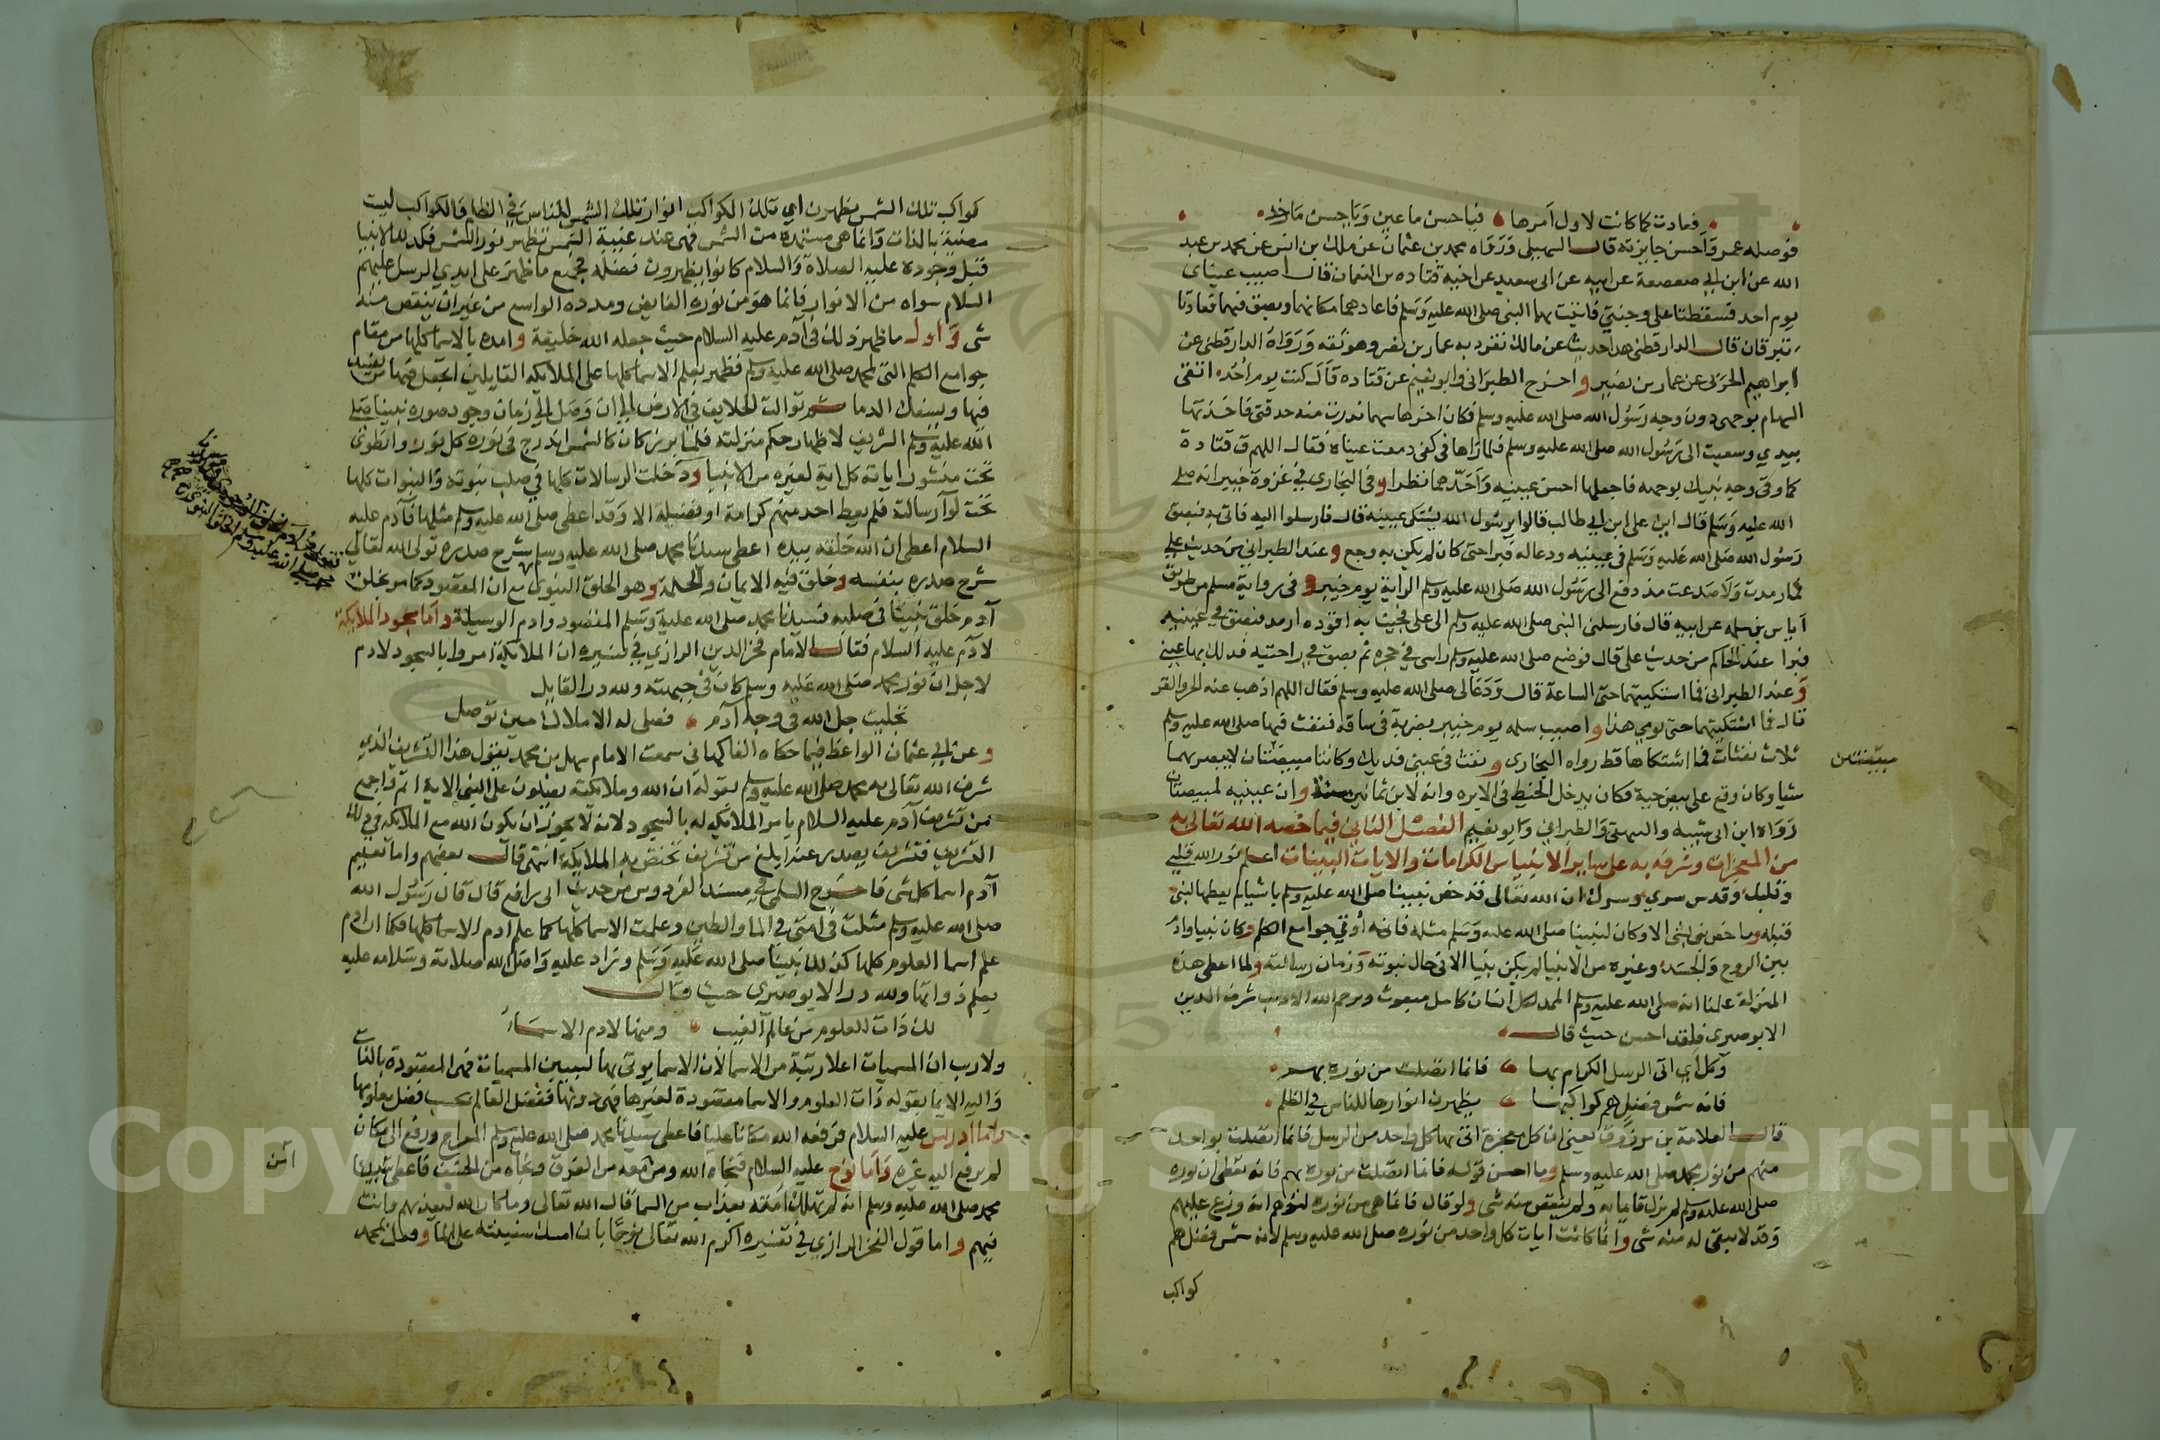 فعادت كما كانت لاول امرها فيا حسن ما عين ويا حسن ما خد
فوصله عمر واحسن جايزته قال السهيلي ورواه محمد بن عثمان عن ملك بن انس عن محمد بن عبد
الله عن ابن ابي صعصعة عن ابيه عن ابي سعيد عن اخيه قتاده بن النعمان قال اصيبت عيناي
يوم احد فسقطتا على وجنتي فاتيت بهما النبي صلى الله عليه وسلم فاعادهما مكانهما وبصق فيهما فعادتا
تبرقان قال الدارقطني هذا حديث عن مالك تفرد به عمار بن نصر وهو ثقه ورواه الدارقطني عن
ابراهيم الحربي عن عمار بن نصير واخرج الطبراني وابو نعيم عن قتاده قال كنت يوم احد اتقى
السهام بوجهي دون وجه رسول الله صلى الله عليه وسلم فكان اخرها سهما ندرت منه حدقتي فاخذتها
بيدي وسعيت الى رسول الله صلى الله عليه وسلم فلما راها في كفي دمعت عيناه فقال اللهم ق قتادة
كما وقى وجه نبيك بوجهه فاجعلها احسن عينيه واحدهما نظرا وفي البخاري في غزوة خيبر انه صلى
الله عليه وسلم قال اين على ابن ابي طالب قالوا يرسول الله يشتكي عينيه قال فارسلوا اليه فاتي به فبصق
رسول الله صلى الله عليه وسلم في عينيه ودعا له فبرا حتى كان لم يكن به وجع وعند الطبراني من حديث علي
فما رمدت ولا صدعت مذ دفع الى رسول الله صلى الله عليه وسلم الراية يوم خيبر وفي رواية مسلم من طريق
اياس بن سلمه عن ابيه قال فارسلني النبي صلى الله عليه وسلم الى علي فجيت به اقوده ارمد فبصق في عينيه
فبرا عند الحاكم من حديث علي قال فوضع صلى الله عليه وسلم راسي في حجره ثم بصق في راحتيه فدلك بها عيني
وعند الطبراني فما اشتكيتهما حتى الساعة قال ودعا لي صلى الله عليه وسلم فقال اللهم اذهب عنه الحر والقر
قال فما اشتكيتهما حتى يومي هذا واصيب سلمه يوم خيبر بضربة في ساقه فنفث فيها صلى الله عليه وسلم
ثلاث نفثات فما اشتكاها قط رواه البخاري ونفث في عيني فديك وكانتا مبيضتان لا يبصر بهما
مبيضتين
شيا وكان وقع على بيض حية فكان يدخل الخيط في الابره وانه لابن ثمانين سنة وان عينيه لمبيضتان
رواه ابن ابي شيبه والبيهقي والطبراني وابو نعيم الفصل الثاني فيما خصه الله تعالى به
من المعجزات وشرفه به على ساير الانبياس الكرامات والايات البينات اعلم نور الله قلبي
وقلبك وقدس سري وسرك ان الله تعالى قد خص نبينا صلى الله عليه وسلم باشيا لم يعطها لنبي
قبله وما خص نبي بشي الا وكان لنبينا صلى الله عليه وسلم مثله فانه اوتي جوامع الكلم وكان نبيا وادم
بين الروح والجسد وغيره من الانبيا لم يكن نبيا الا في حال نبوته وزمان رسالته ولما اعطي هذه
المنزلة علمنا انه صلى الله عليه وسلم الممد لكل انسان كامل مبعوث ويرحم الله الاديب شرف الدين
الابوصيري فلقد احسن حيث قال
وكل اي اتى الرسل الكرام بها فانما اتصلت من نوره بهم
فانه شمس فضل هم كواكبها يظهرن انوارها للناس في الظلم
قال العلامة بن مرزوق يعني ان كل معجزة اتى بها كل واحد من الرسل فانما اتصلت بواحد
منهم من نور محمد صلى الله عليه وسلم وما احسن قوله فانما اتصلت من نوره بهم فانه يعطي ان نوره
صلى الله عليه وسلم لم يزل قايما به ولم ينقص منه شي ولو قال فانما هي من نوره لتوهم انه وزع عليهم
وقد لا يبقى له منه شي وانما كانت ايات كل واحد من نوره صلى الله عليه وسلم لانه شمس فضل هم
كواكب
كواكب تلك الشمس يظهرن اي تلك الكواكب انوار تلك الشمس للناس في الظلم فالكواكب ليست
مضيئة بالذات وانما هي مستمدة من الشمس فهي عند غيبة الشمس تظهر نور الشمس فكذلك الانبيا
قبل وجوده عليه الصلاة والسلام كانوا يظهرون فضله فجميع ما ظهر على ايدي الرسل عليهم
السلام سواه من الانوار فانما هو من نوره الفايض ومدده الواسع من غير ان ينقص منه
شي واول ما ظهر ذلك في آدم عليه السلام حيث جعله الله خليفة وامده بالاسما كلها من مقام
جوامع الكلم التي لمحمد صلى الله عليه وسلم فظهر بعلم الاسما كلها على الملايكه القايلين اتجعل فيها من يفسد
فيها ويسفك الدما ثم توالت الخلايف في الارض الى ان وصل الى زمان وجود صوره نبينا صلى
الله عليه وسلم الشريف لاظهار حكم منزلته فلما برز كان كالشمس اندرج في نوره كل نور وانطوى
تحت منشور اياته كل اية لغيره من الانبيا ودخلت الرسالات كلها في صلب نبوته والنبوات كلها
تحت لوآ رسالته فلم يعط احد منهم كرامة او فضيلة الا وقد اعطي صلى الله عليه وسلم مثلها فآدم عليه
السلام اعطي ان الله خلقه بيده اعطي سيدنا محمد صلى الله عليه وسلم شرح صدره تولى الله تعالى
شرح صدره بنفسه وخلق فيه الايمان والحكمة وهو الخلق النبوي مع ان المقصود كما مر بخلق
آدم خلق نبينا في صلبه فسيدنا محمد صلى الله عليه وسلم المقصود وادم الوسيلة واما سجود الملايكة
لادم عليه السلام فقال الامام فخر الدين الرازي في تفسيره ان الملايكة امروا بالسجود لادم
لاجل ان نور محمد صلى الله عليه وسلم كان في جبهته ولله در القايل
تجليت جل الله في وجه آدم فصلى له الاملاك حين توصل
وعن ابي عثمان الواعظ فيما حكاه الفاكهاني سمعت الامام سهل بن محمد يقول هذا التشريف الذي
شرف الله تعالى به محمد صلى الله عليه وسلم بقوله ان الله وملايكته يصلون على النبي الاية اتم واجمع
من تشريف آدم عليه السلام بامر الملايكه له بالسجود لانه لا يجوز ان يكون الله مع الملايكه في ذلك
التشريف فتشريف يصدر عنه ابلغ من تشريف تختص به الملايكة انتهى قال بعضهم واما تعليم
آدم اسما كل شي فاخرج السلمي في مسند الفردوس من حديث ابي رافع قال قال رسول الله
صلى الله عليه وسلم مثلت لي امتي في الما والطين وعلمت الاسما كلها كما علم ادم الاسما كلها فكما ان ادم
علم اسما العلوم كلها كذلك نبينا صلى الله عليه وسلم وزاد عليه واصل الله صلاته وسلامه عليه
بعلم ذواتها ولله در الابوصيري حيث قال
لك ذات العلوم من عالم الغيب ومنها لادم الاسماء
ولا ريب ان المسميات اعلا رتبة من الاسما لان الاسما يوتى بها لتبين المسميات فهي المقصودة بالذات
واليه الايما بقوله ذات العلوم والاسما مقصودة لغيرها فهي دونها ففضل العالم بحسب فضل معلومها
واما ادريس عليه السلام فرفعه الله مكانا عليا فاعطي سيدنا محمد صلى الله عليه وسلم المعراج ورفع الى مكان
لم يرفع اليه غيره واما نوح عليه السلام فنجاه الله ومن معه من الغرق ونجاه من الخسف فاعطي نبينا
محمد صلى الله عليه وسلم انه لم تهلك امته بعذاب من السما قال الله تعالى وما كان الله ليعذبهم وانت
فيهم واما قول الفخر الرازي في تفسيره اكرم الله تعالى نوحا بان امسك سفينته على الما وفعل بمحمد